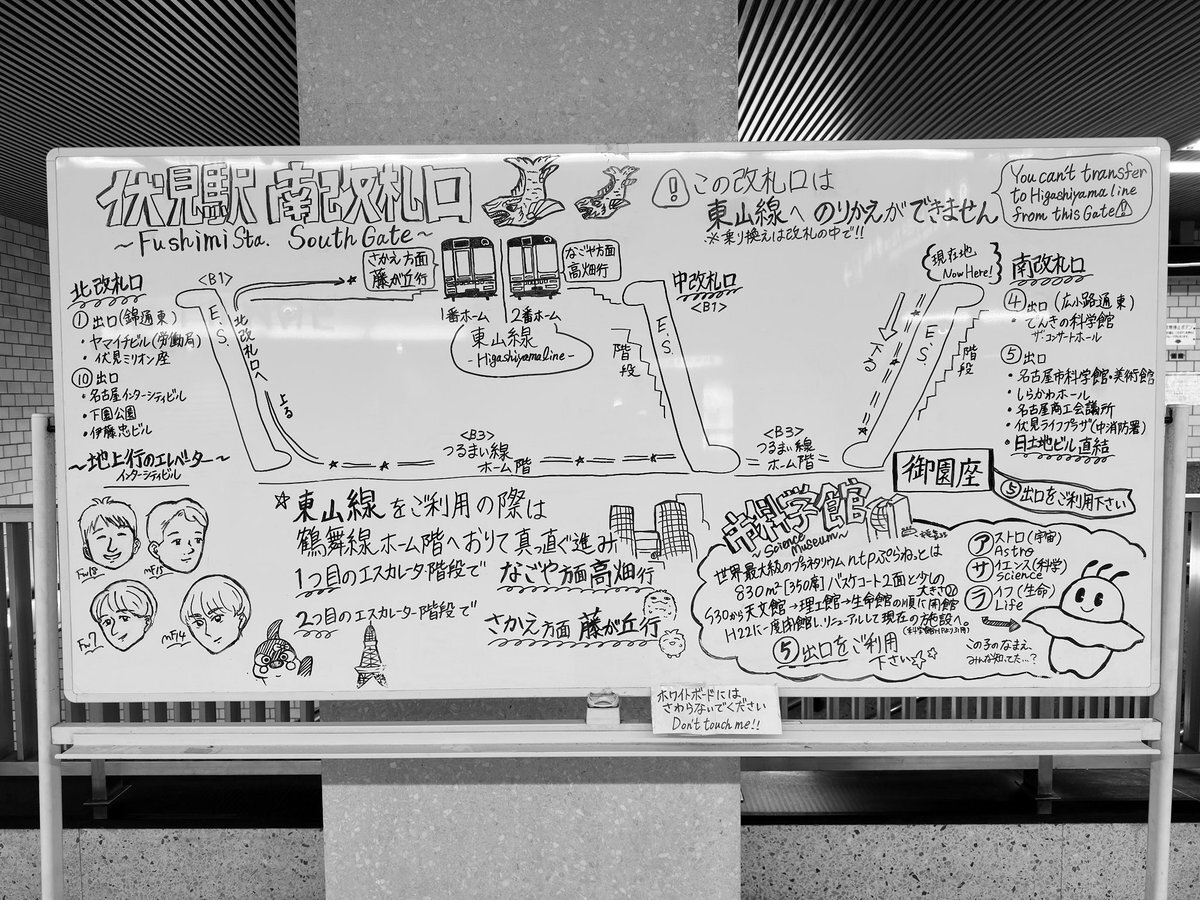 伏見駅 南改札口
~Fushimi Sta. South Gate~
! この改札口は
東山線へ のりかえができません
※乗り換えは改札の中で!!
You can't transfer
to Higashiyama line
from this Gate!
北改札口
① 出口(錦通東)
・ヤマイチビル(労働局)
・伏見ミリオン座
⑩ 出口
・名古屋インターシティビル
・下園公園
・伊藤忠ビル
~地上行のエレベーター~
インターシティビル
<B1>
E.S.
北改札口へ
上る
さかえ方面
藤が丘行
なごや方面
高畑行
1番ホーム
2番ホーム
東山線
-Higashiyama line-
中改札口
<B1>
階段
E.S.
<B3>
つるまい線
ホーム階
<B3>
つるまい線
ホーム階
現在地
Now Here!
下る
E.S.
階段
南改札口
④ 出口(広小路通東)
・でんきの科学館
ザ・コンサートホール
⑤ 出口
・名古屋市科学館・美術館
・しらかわホール
・名古屋商工会議所
・伏見ライフプラザ(中消防署)
・日土地ビル直結
御園座
⑤出口をご利用下さい
☆東山線をご利用の際は
鶴舞線ホーム階へおりて真っ直ぐ進み
1つ目のエスカレータ階段で なごや方面高畑行
2つ目のエスカレーター階段で さかえ方面 藤が丘行
市科学館
~Science Museum~
世界最大級のプラネタリウム
830㎡[350席]バスケコート2面と少しの
大きさ
S30から天文館→理工館→生命館の順に開館
H22に一度閉館しリニューアルして現在の施設へ。
⑤ 出口をご利用
下さい☆☆
ア ストロ(宇宙)
Astro
サ イエンス(科学)
Science
ラ イフ(生命)
Life
この子のなまえ、
みんな知ってた…?
ホワイトボードには
さわらないでください
Don't touch me!!